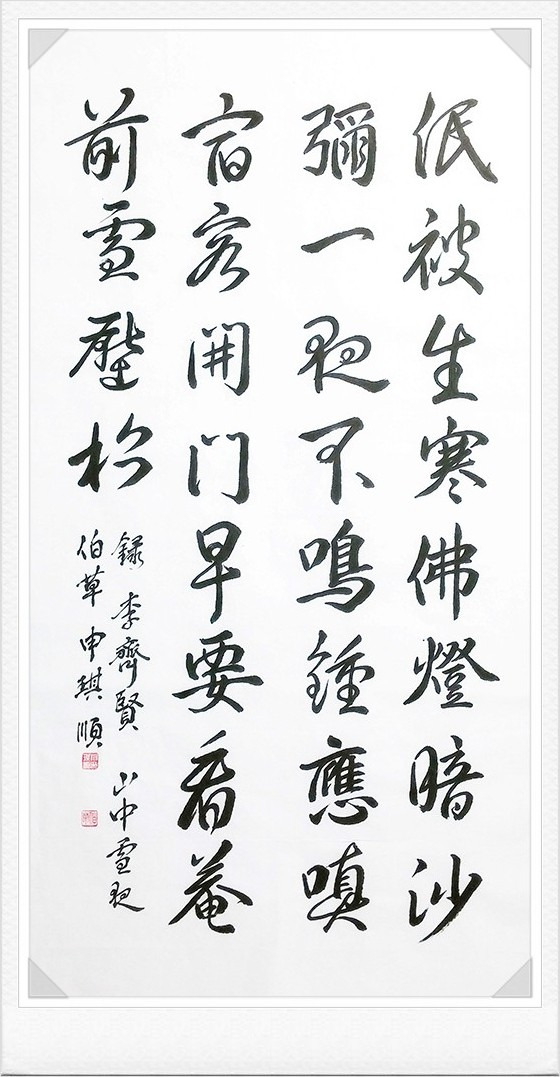 紙被生寒佛燈暗沙
彌一夜不鳴鍾應嗔
宿客開門早要看菴
前雪壓松
錄 李齊賢 山中雪夜
伯草 申琪順